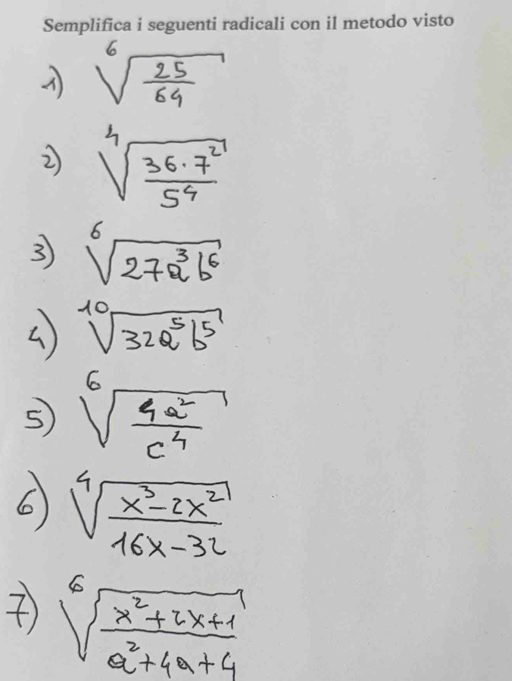 Semplifica i seguenti radicali con il metodo visto
1) ⁶√(25/64)
2) ⁴√(36·7²/5⁴)
3) ⁶√(27a³b⁶)
4) ¹⁰√(32a⁵b⁵)
5) ⁶√(4a²/c⁴)
6) ⁴√((x³-2x²)/(16x-32))
7) ⁶√((x²+2x+1)/(a²+4a+4))